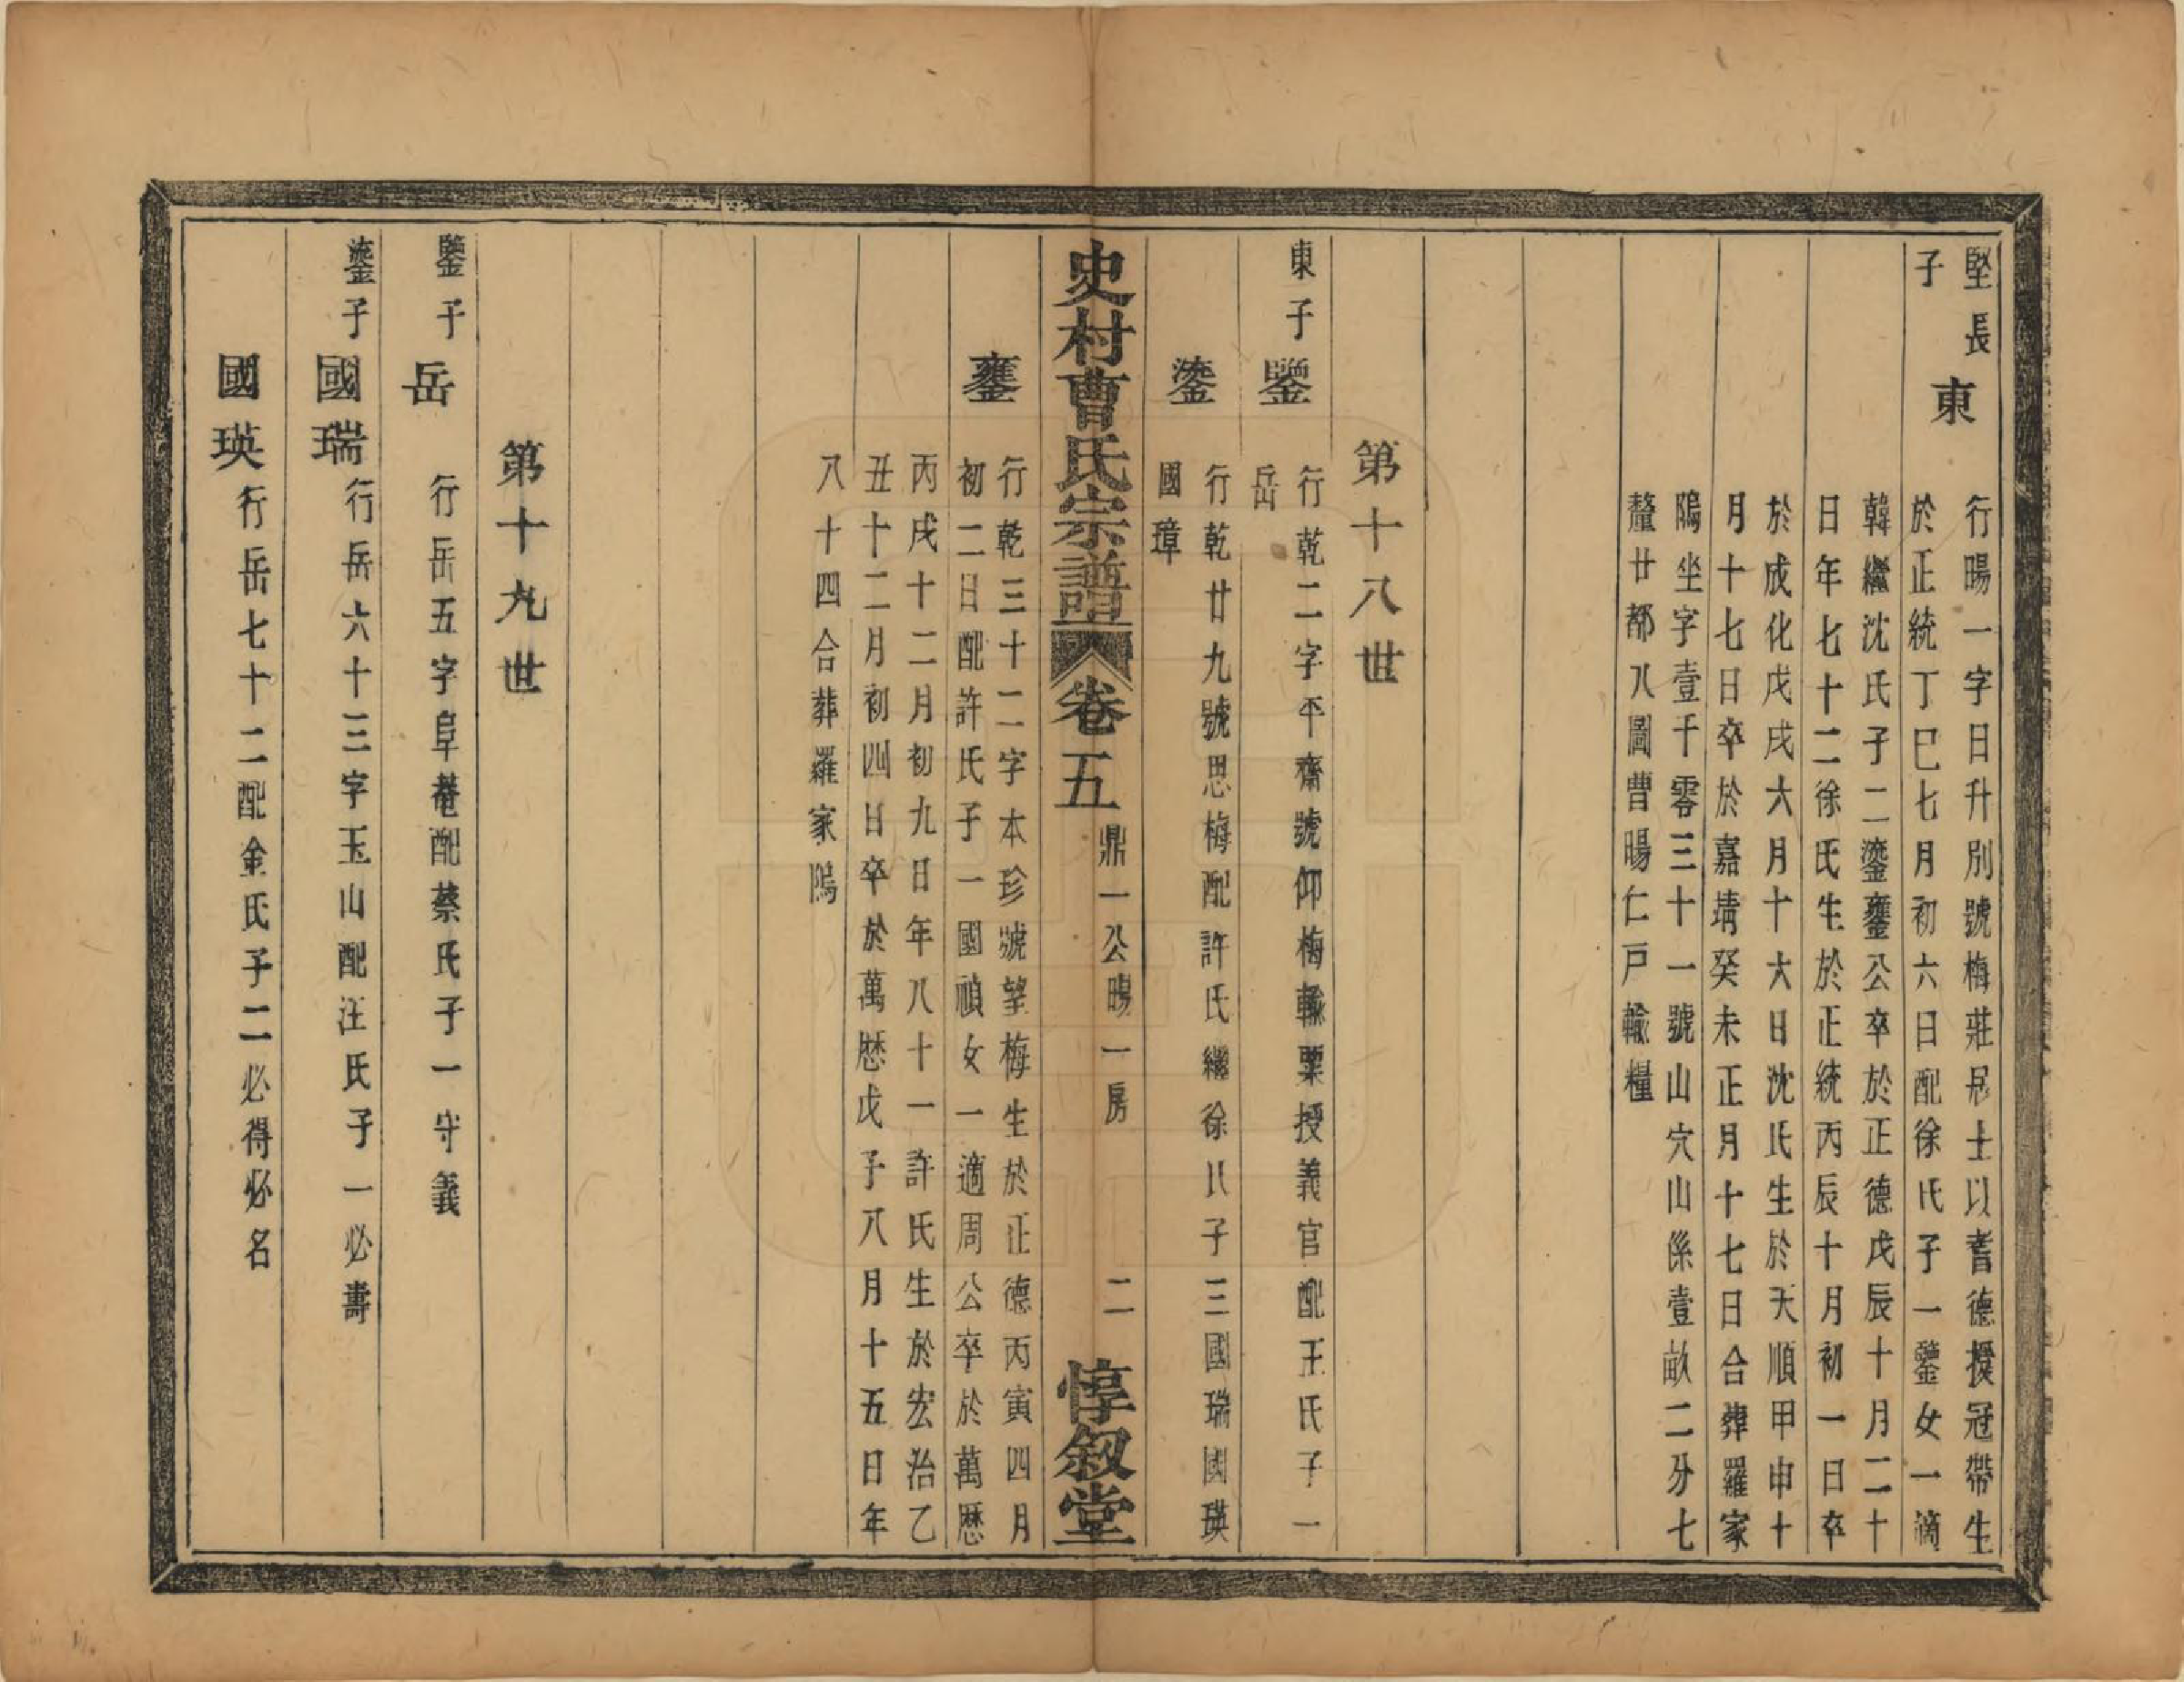 堅長子
東
行暘一字日升別號梅莊居士以耆德授冠帶生
於正統丁巳七月初六日配徐氏子一鑒女一適
韓繼沈氏子二鎏鏖公卒於正德戊辰十月二十
日年七十二徐氏生於正統丙辰十月初一日卒
於成化戊戌六月十六日沈氏生於天順甲申十
月十七日卒於嘉靖癸未正月十七日合葬羅家
隖坐字壹千零三十一號山穴山係壹畝二分七
釐廿都八圖曹暘仁戸輸糧
第十八世
東子
鑒
行乾二字平齋號仰梅輸粟授義官配王氏子一
岳
鎏
行乾廿九號思梅配許氏繼徐氏子三國瑞國瑛
國璋
行乾三十二字本珍號望梅生於正德丙寅四月
初二日配許氏子一國禎女一適周公卒於萬歴
丙戌十二月初九日年八十一許氏生於宏治乙
丑十二月初四日卒於萬歴戊子八月十五日年
八十四合葬羅家隖
史村曹氏宗譜
卷五
鼎一公暘一房
二
惇叙堂
第十九世
鑒子
岳
行岳五字阜菴配蔡氏子一守義
鎏子
國瑞
行岳六十三字玉山配汪氏子一必壽
國瑛
行岳七十二配金氏子二必得必名